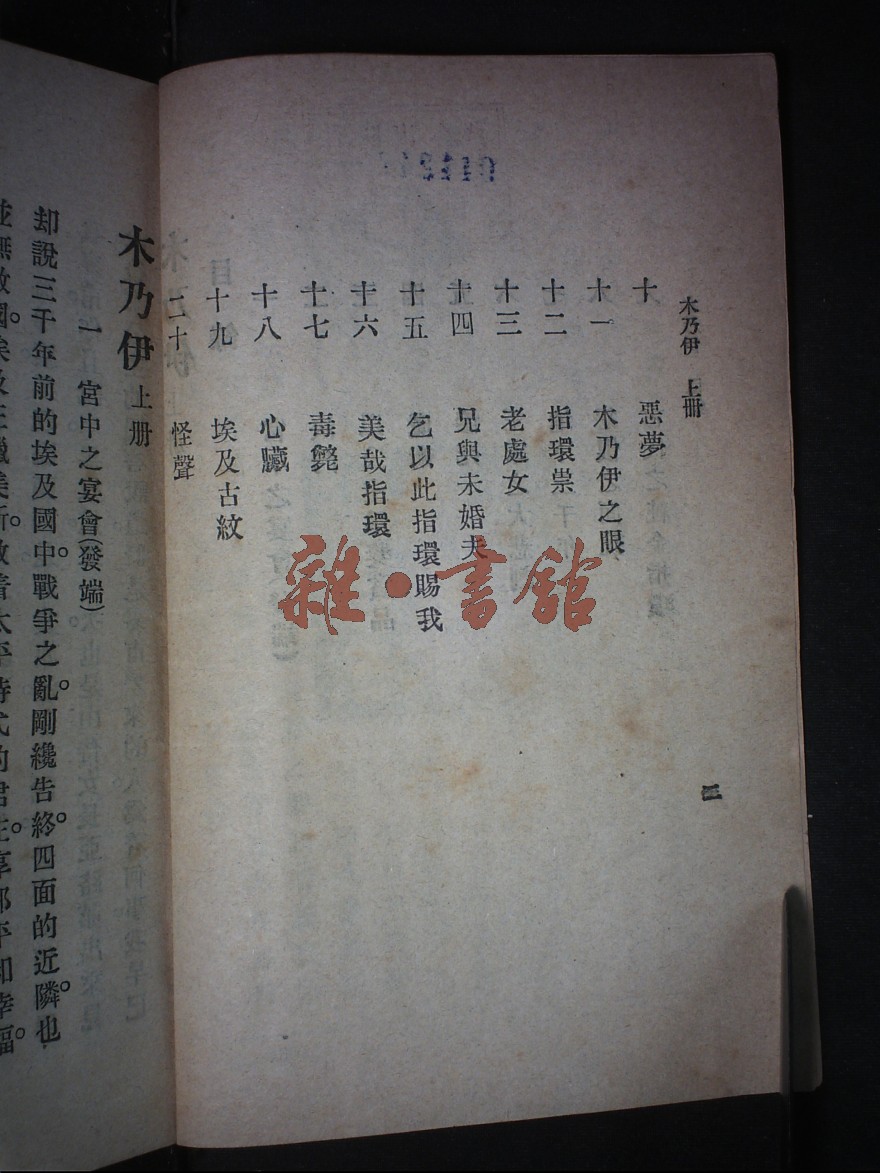 木乃伊 上冊
十 惡夢
十一 木乃伊之眼
十二 指環祟
十三 老處女
十四 兄與未婚夫
十五 乞以此指環賜我
十六 美哉指環
十七 毒斃
十八 心臟
十九 埃及古紋
二十 怪聲
雜·書館
木乃伊 上册
一 宮中之宴會(發端)
却說三千年前的埃及國中。戰爭之亂。剛纔告終。四面的近隣。也